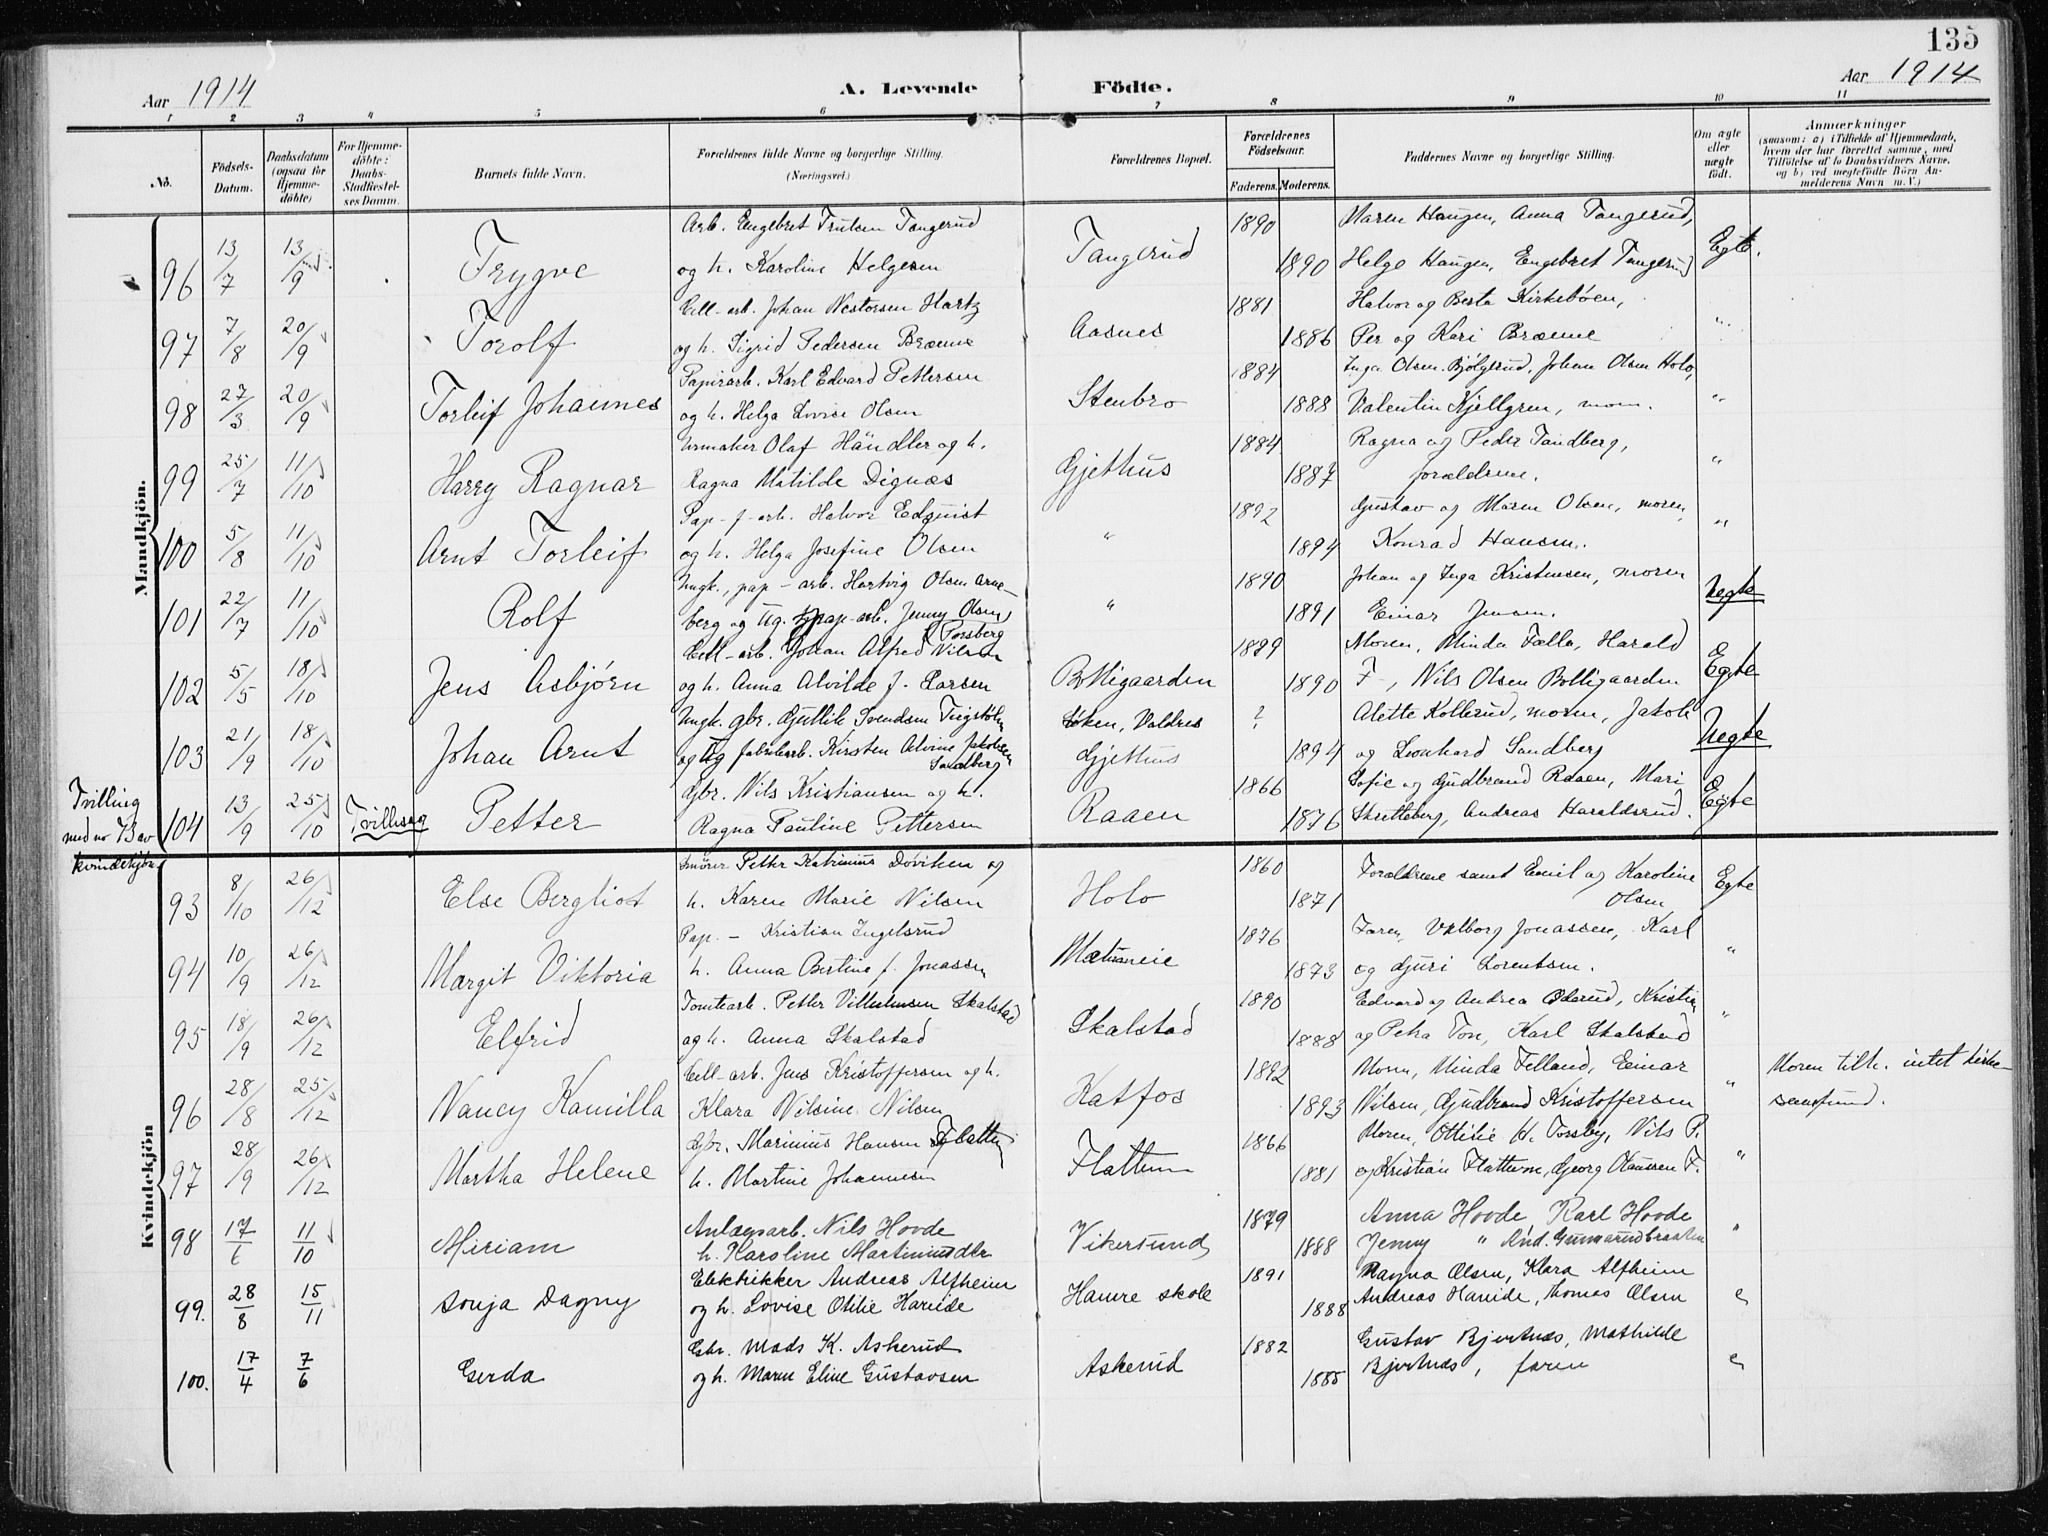 135
Aar 1914 A. Levende Födte. Aar 1914
1 2 3 4 5 6 7 8 9 10 11
No. Födsels-Datum. Daabsdatum (ogsaa for Hjemme-döbte) For Hjemme-döbte: Daabs-Stadfæstel-ses Datum. Barnets fulde Navn. Forældrenes fulde Navne og borgerlige Stilling. (Næringsvei.) Forældrenes Bopæl. Forældrenes Födselsaar. Faderens. Moderens. Faddernes Navne og borgerlige Stilling. Om ægte eller uægte födt. Anmærkninger (saasom: a) i Tilfælde af Hjemmedaab, hvem der har forrettet samme, med Tilföielse af to Daabsvidners Navne, og b) ved uegtefödte Börn Anmelderens Navn m. V.)
Mandkjön.
Arb. Engebret Trulsen Tangerud 1890 Maren Haugen, Anna Tangerud,
96 13/7 13/9 Trygve og h. Karoline Helgesen Tangerud 1890 Helge Haugen, Engebret Tangerud Egte.
Cell-arb. Johan Nestorsen Hartz 1881 Halvor og Berta Kirkebøen,
97 7/8 20/9 Torolf og h. Sigrid Pedersen Bræme Aasnes 1886 Per og Kari Bræme "
Papirarb. Karl Edvard Pettersen 1884 Inga Olsen Bjölgerud, Johan Olsen Holo,
98 27/3 20/9 Torleif Johannes og h. Helga Lovise Olsen Stenbro 1888 Valentin Kjellgren, mom. "
Urmaker Olaf Händler og h. 1884 Ragna og Peder Tandberg,
99 25/7 11/10 Harry Ragnar Ragna Matilde Dignæs Gjethus 1887 forældrene. "
Pap-f-arb. Halvor Edquist 1892 Gustav og Maren Olsen, moren,
100 5/8 11/10 Arnt Torleif og h. Helga Josefine Olsen " 1894 Konrad Hansen. "
Ungk., pap-arb. Hartvig Olsen Arne- 1890 Johan og Inga Kristensen, moren
101 22/7 11/10 Rolf berg og Ug. pap-arb. Jenny Olsen Torsberg " 1891 Einar Jensen. Uegte
Cell-arb. Johan Alfred Nilsen 1889 Moren, Minda Fælla, Harald
102 5/5 18/10 Jens Asbjørn og h. Anna Alvilde f. Larsen Bottigaarden 1890 F-, Nils Olsen Bottigaarden Egte
Ungk. gbr. Gullik Svendsen ? Alette Kollerud, moren, Jakob
103 21/9 18/10 Johan Arnt og Ug fabrikarb. Kirsten Alvine Jakobsen Sandberg Løken, Valdres Gjethus 1894 og Leonhard Sandberg Uegte
Gbr. Nils Kristiansen og h. 1866 Sofie og Gudbrand Raaen, Mari
104 13/9 25/10 Tvilling Petter Ragna Pauline Pettersen Raaen 1876 Skretteberg, Andreas Haraldsrud. Egte
Tvilling
med no 73 av
kvindekjøn.
Kvindekjön
Petter Katrinius Doviken og 1860 Forældrene samt Emil og Karoline
93 8/10 26/12 Else Bergliot h. Karen Marie Nilsen Holo 1871 Olsen Egte
Pap. - Kristian Ingelsrud 1876 Faren, Valborg Jonassen, Karl
94 10/9 26/12 Margit Viktoria h. Anna Bertine f. Jonassen 1873 og Guri Lorentsen. "
Tomtearb. Petter Vilhelmsen Skalstad 1890 Edvard og Andrea Øderud, Kristian
95 18/9 26/12 Elfrid og h. Anna Skalstad Skalstad 1888 og Petra Ton, Karl Skalstad "
Cell-arb. Jens Kristoffersen og h. 1892 Moren, Minda Felland, Einar Moren tilh. intet kirke-
96 28/8 25/12 Nancy Kamilla Klara Nilsine Nilsen Katfos 1893 Nilsen, Gudbrand Kristoffersen " samfund.
Gbr. Marinius Hansen Flattum 1866 Moren, Ottilie H. Torsby, Nils P.
97 28/9 26/12 Martha Helene h. Martine Johannesen Flattum 1881 og Kristian Flattum, Georg Olaussen F. "
Anlægsarb. Nils Hovde 1879 Anna Hovde Karl Hovde
98 17/6 11/10 Miriam h. Karoline Martinusdtr Vikersund 1888 Jenny " And. Gunnarudbraaten "
Elektrikker Andreas Alfheim 1891 Ragna Olsen, Klara Alfheim
99. 28/8 15/11 Sonja Dagny og h. Lovise Otilie Hareide Hamre skole 1888 Andreas Hareide, Thomas Olsen "
Gbr. Mads K. Askerud 1882 Gustav Bjertnæs, Mathilde
100. 17/4 7/6 Gerda og h. Maren Eline Gustavsen Askerud 1885 Bjertnæs, faren "